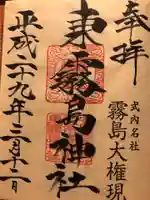 奉拝
式内名社
霧島大権現
東霧島神社
平成二十九年三月十二日